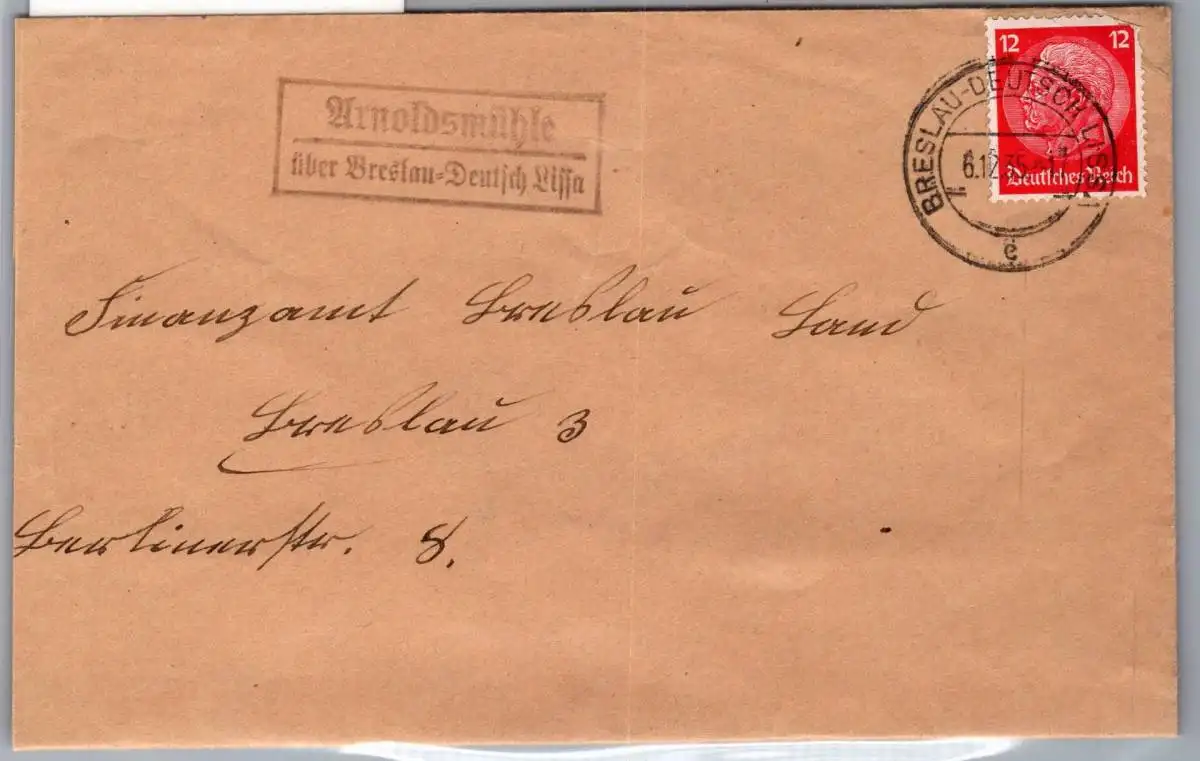 Arnoldsmühle
über Breslau-Deutsch Lissa
12 12
Deutsches Reich
BRESLAU-DEUTSCH LISSA
6.12.35
e
Finanzamt Breslau Land
Breslau 3
Berlinerstr. 8.